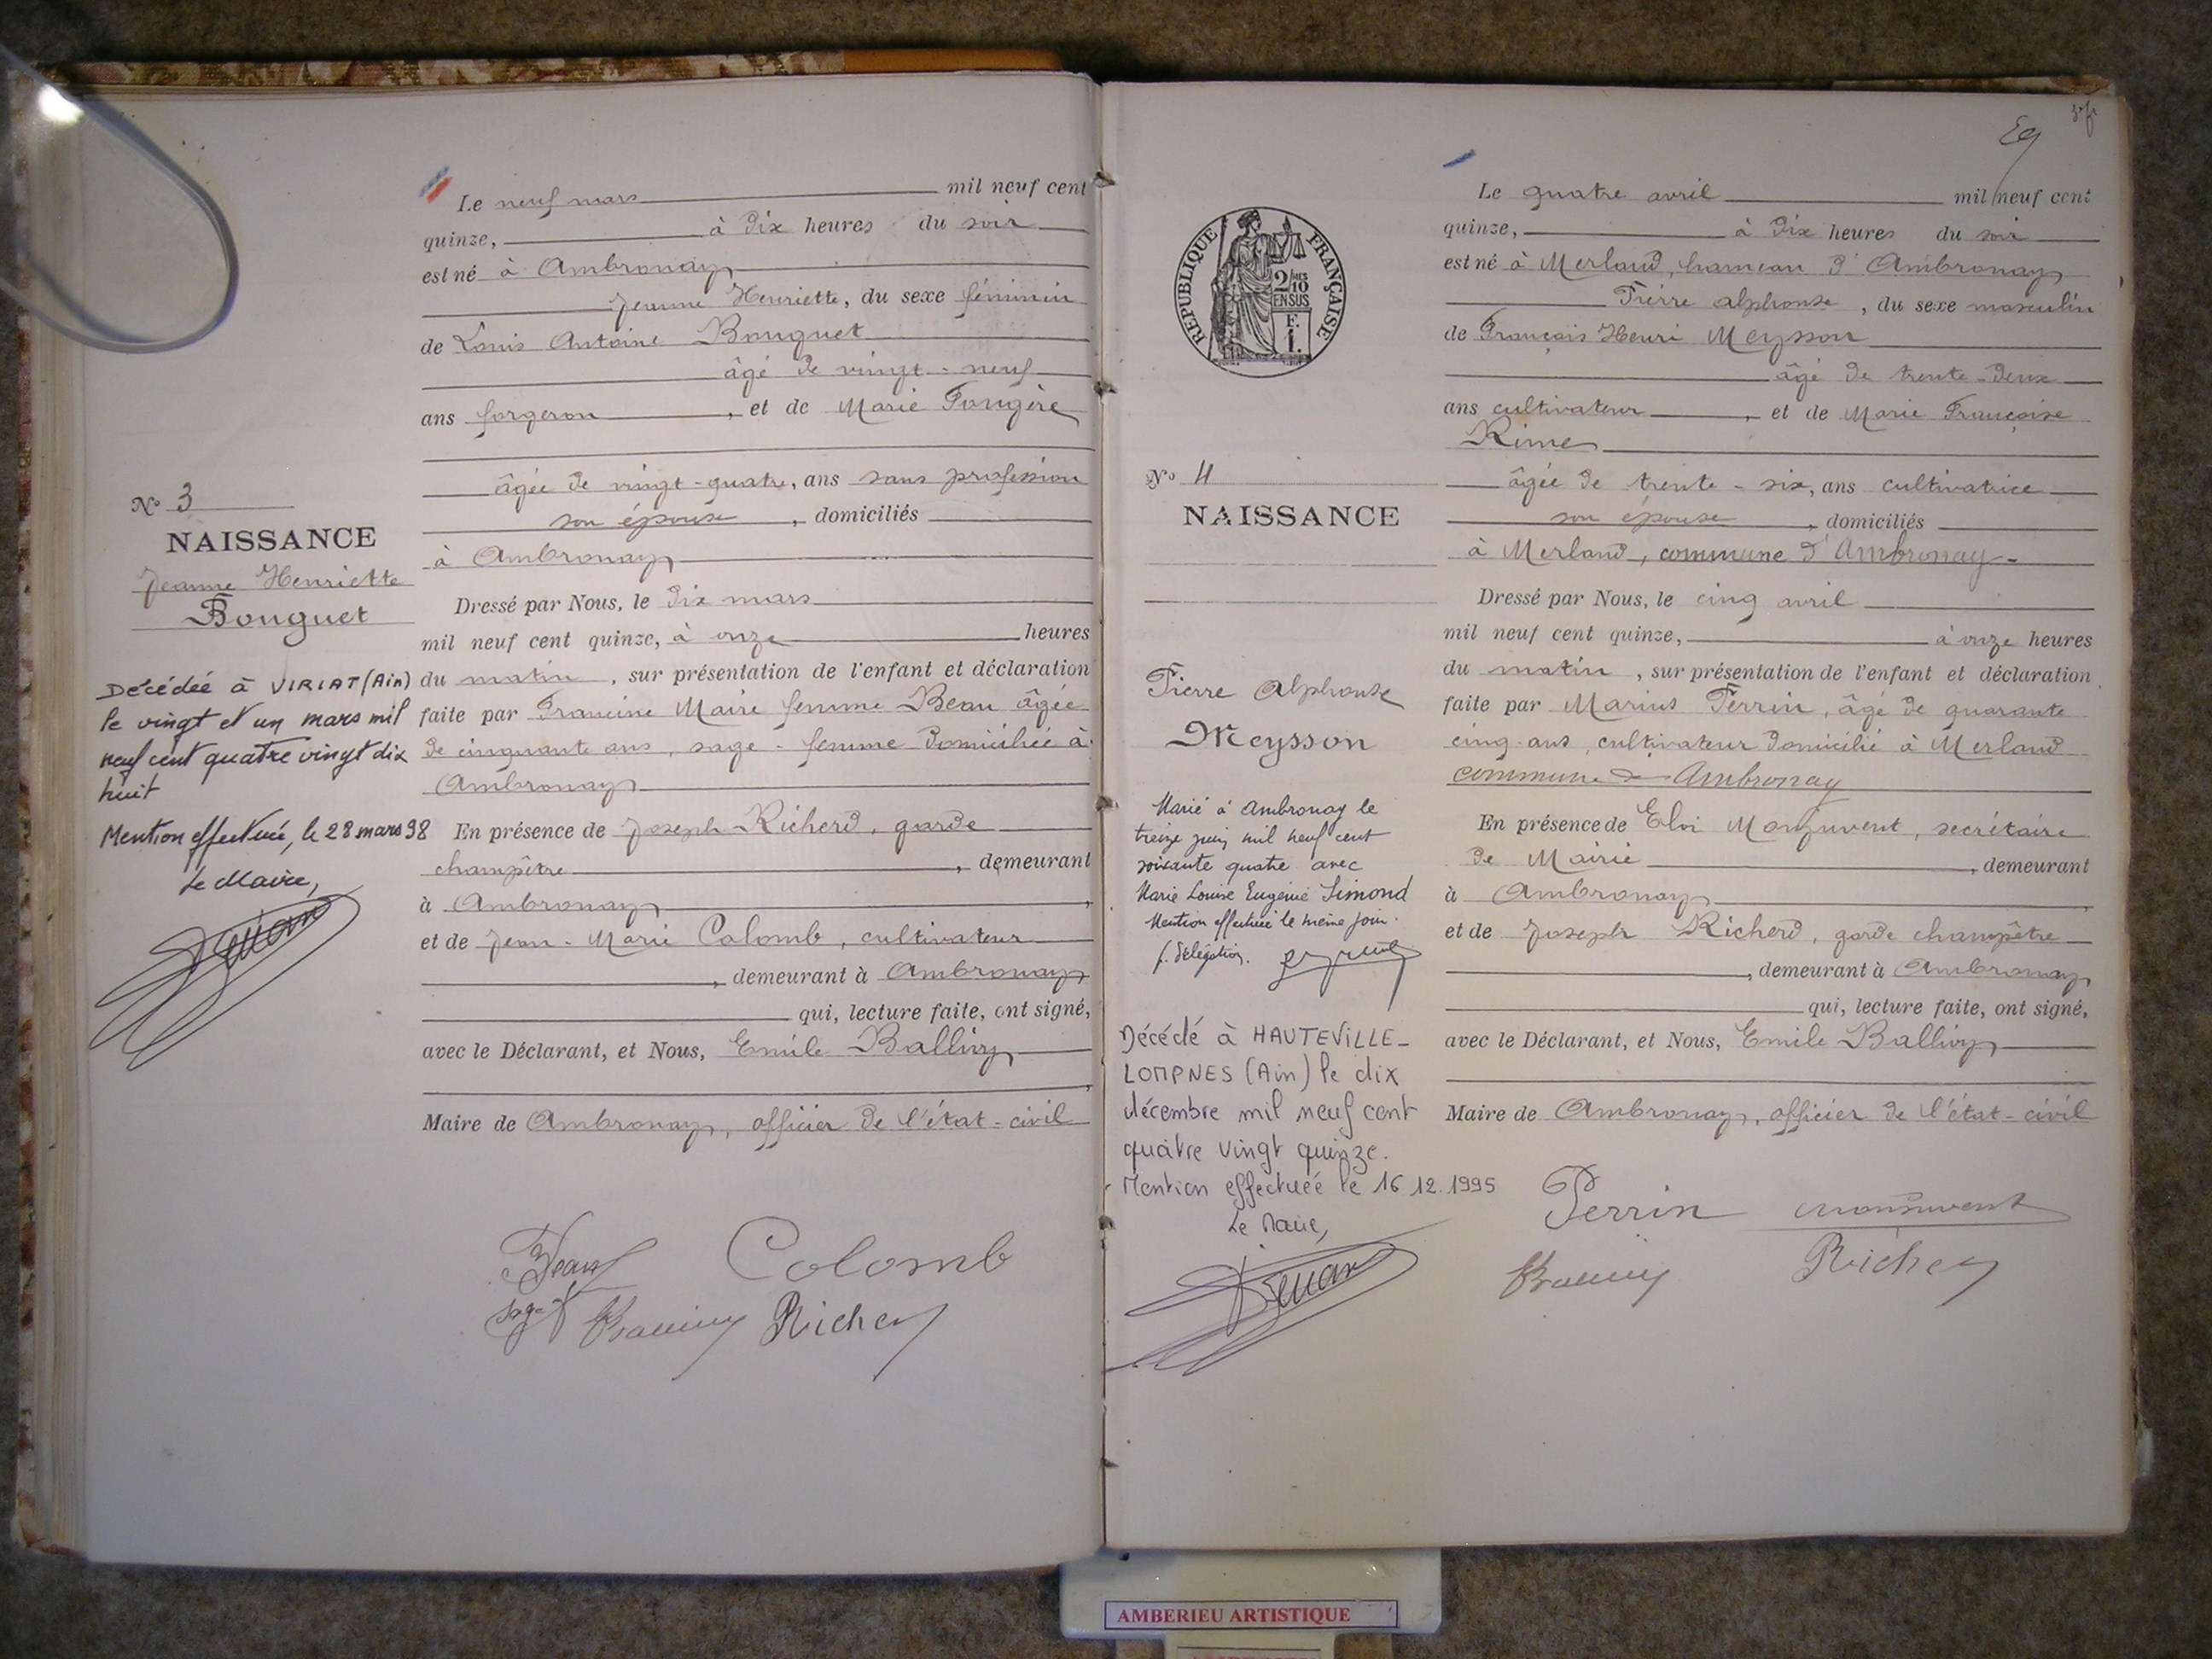 Le neuf mars mil neuf cent
quinze, à dix heures du soir
est né à Ambronay
Jeanne Henriette, du sexe féminin
de Louis Antoine Bouquet
âgé de vingt-neuf
ans forgeron, et de Marie Fougère
âgée de vingt-quatre, ans sans profession
son épouse, domiciliés
à Ambronay
Dressé par Nous, le dix mars
mil neuf cent quinze, à onze heures
du matin, sur présentation de l'enfant et déclaration
faite par Francine Maire femme Beau âgée
de cinquante ans, sage-femme domiciliée à
Ambronay
En présence de Joseph Richerd, garde
champêtre, demeurant
à Ambronay,
et de Jean-Marie Colomb, cultivateur
, demeurant à Ambronay
qui, lecture faite, ont signé,
avec le Déclarant, et Nous, Emile Ballivy
Maire de Ambronay, officier de l'état-civil
Colomb
Richerd
No 3
NAISSANCE
Jeanne Henriette
Bouquet
Décédée à VIRIAT (Ain)
le vingt et un mars mil
neuf cent quatre vingt dix
huit
Mention effectuée, le 28 mars 98
Le Maire,
59
REPUBLIQUE FRANÇAISE
2/10 EN SUS
F. 1.
No 4
NAISSANCE
Pierre Alphonse
Meysson
Marié à Ambronay le
treize juin mil neuf cent
soixante quatre avec
Marie Louise Eugénie Simond
Mention effectuée le même jour.
p. délégation.
Décédé à HAUTEVILLE-
LOMPNES (Ain) le dix
décembre mil neuf cent
quatre vingt quinze.
Mention effectuée le 16.12.1995
Le Maire,
Le quatre avril mil neuf cent
quinze, à dix heures du soir
est né à Merland, hameau d'Ambronay
Pierre alphonse, du sexe masculin
de François Henri Meysson
âgé de trente-deux
ans cultivateur, et de Marie Françoise
Rime
âgée de trente-six, ans cultivatrice
son épouse, domiciliés
à Merland, commune d'Ambronay-
Dressé par Nous, le cinq avril
mil neuf cent quinze, à onze heures
du matin, sur présentation de l'enfant et déclaration
faite par Marius Perrin, âgé de quarante
cinq ans, cultivateur domicilié à Merland
commune d'Ambronay
En présence de Eloi Monjuvent, secrétaire
de Mairie, demeurant
à Ambronay,
et de Joseph Richerd, garde champêtre
, demeurant à Ambronay
qui, lecture faite, ont signé,
avec le Déclarant, et Nous, Emile Ballivy
Maire de Ambronay, officier de l'état-civil
Perrin Monjuvent
Richerd
AMBERIEU ARTISTIQUE